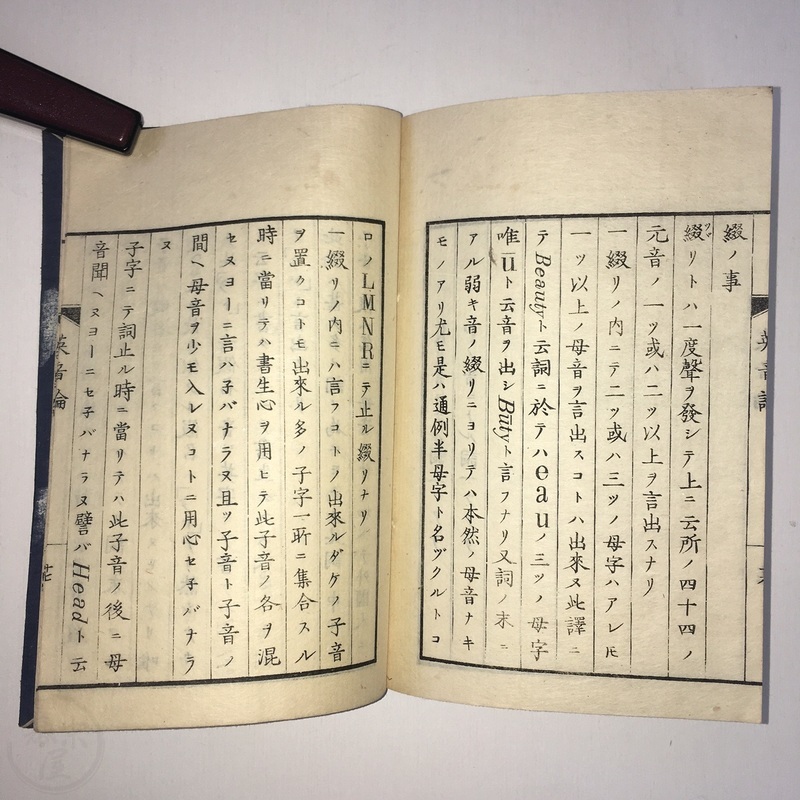 綴ノ事
綴リトハ一度聲ヲ發シテ上ニ云所ノ四十四ノ
元音ノ一ツ或ハ二ツ以上ヲ言出スナリ
一綴リノ内ニテ二ツ或ハ三ツノ母字ハアレ𪜈
一ツ以上ノ母音ヲ言出スコトハ出來ヌ此譯ニ
テBeautyト云詞ニ於テハeauノ三ツノ母字
唯ūト云音ヲ出シBūtyト言フナリ又詞ノ末ニ
アル弱キ音ノ綴リニヨリテハ本然ノ母音ナキ
モノアリ尤モ是ハ通例半母字ト名ヅクルトコ
ロノLMNRニテ止ル綴リナリ
一綴リノ内ニハ言フコトノ出來ルダケノ子音
ヲ置クコトモ出來ル多ノ子字一所ニ集合スル
時ニ當リテハ書生心ヲ用ヒテ此子音ノ各ヲ混
セヌヨーニ言ハ子バナラヌ且ツ子音ト子音ノ
間ヘ母音ヲ少モ入レヌコトニ用心セ子バナラ
ヌ
子字ニテ詞止ル時ニ當リテハ此子音ノ後ニ母
音聞ヘヌヨーニセ子バナラヌ譬バHeadト云
英音論